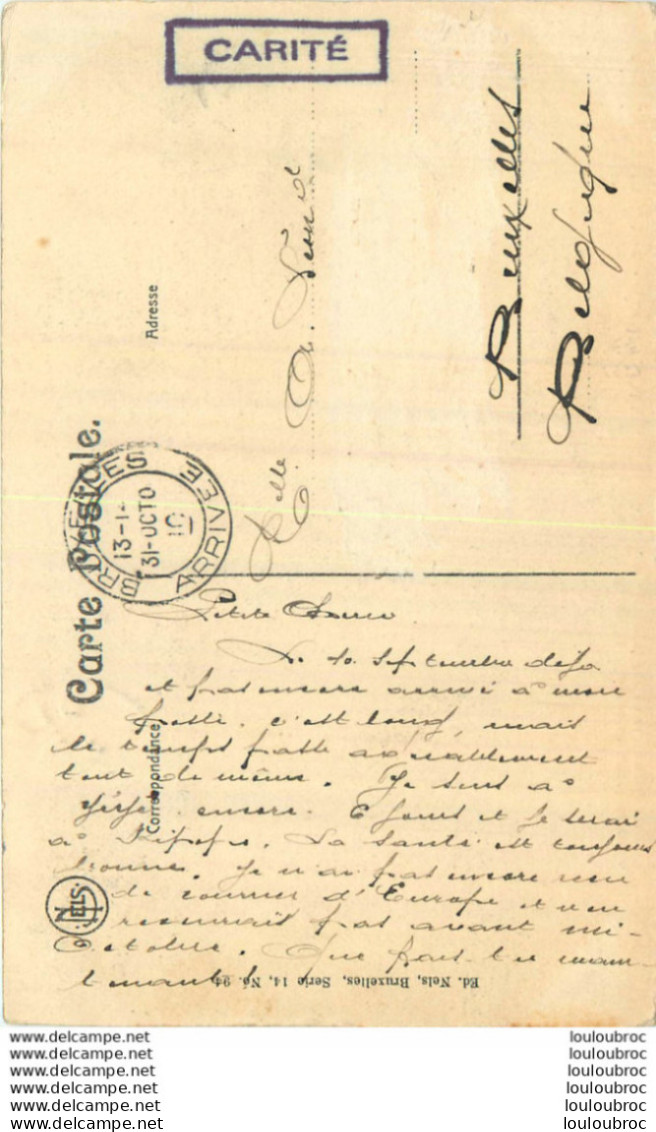 CARITÉ
Carte Postale.
Adresse
Correspondance
BRUXELLES
13-1
31-OCTO
10
ARRIVÉE
Melle
Bruxelles
Belgique
Petite
Le 10 septembre déjà
et pas encore arrivé à mon
poste, c'est long, mais
le temps passe agréablement
tout de même. Je suis à
encore. 6 jours et je serai
à La santé est toujours
bonne. Je n'ai pas encore reçu
de courrier d'Europe et n'en
recevrait pas avant mi-
Octobre. Que fais-tu main-
tenant
NELS
Ed. Nels, Bruxelles, Serie 14, No. 94
www.delcampe.net
www.delcampe.net
www.delcampe.net
www.delcampe.net
www.delcampe.net
louloubroc
louloubroc
louloubroc
louloubroc
louloubroc